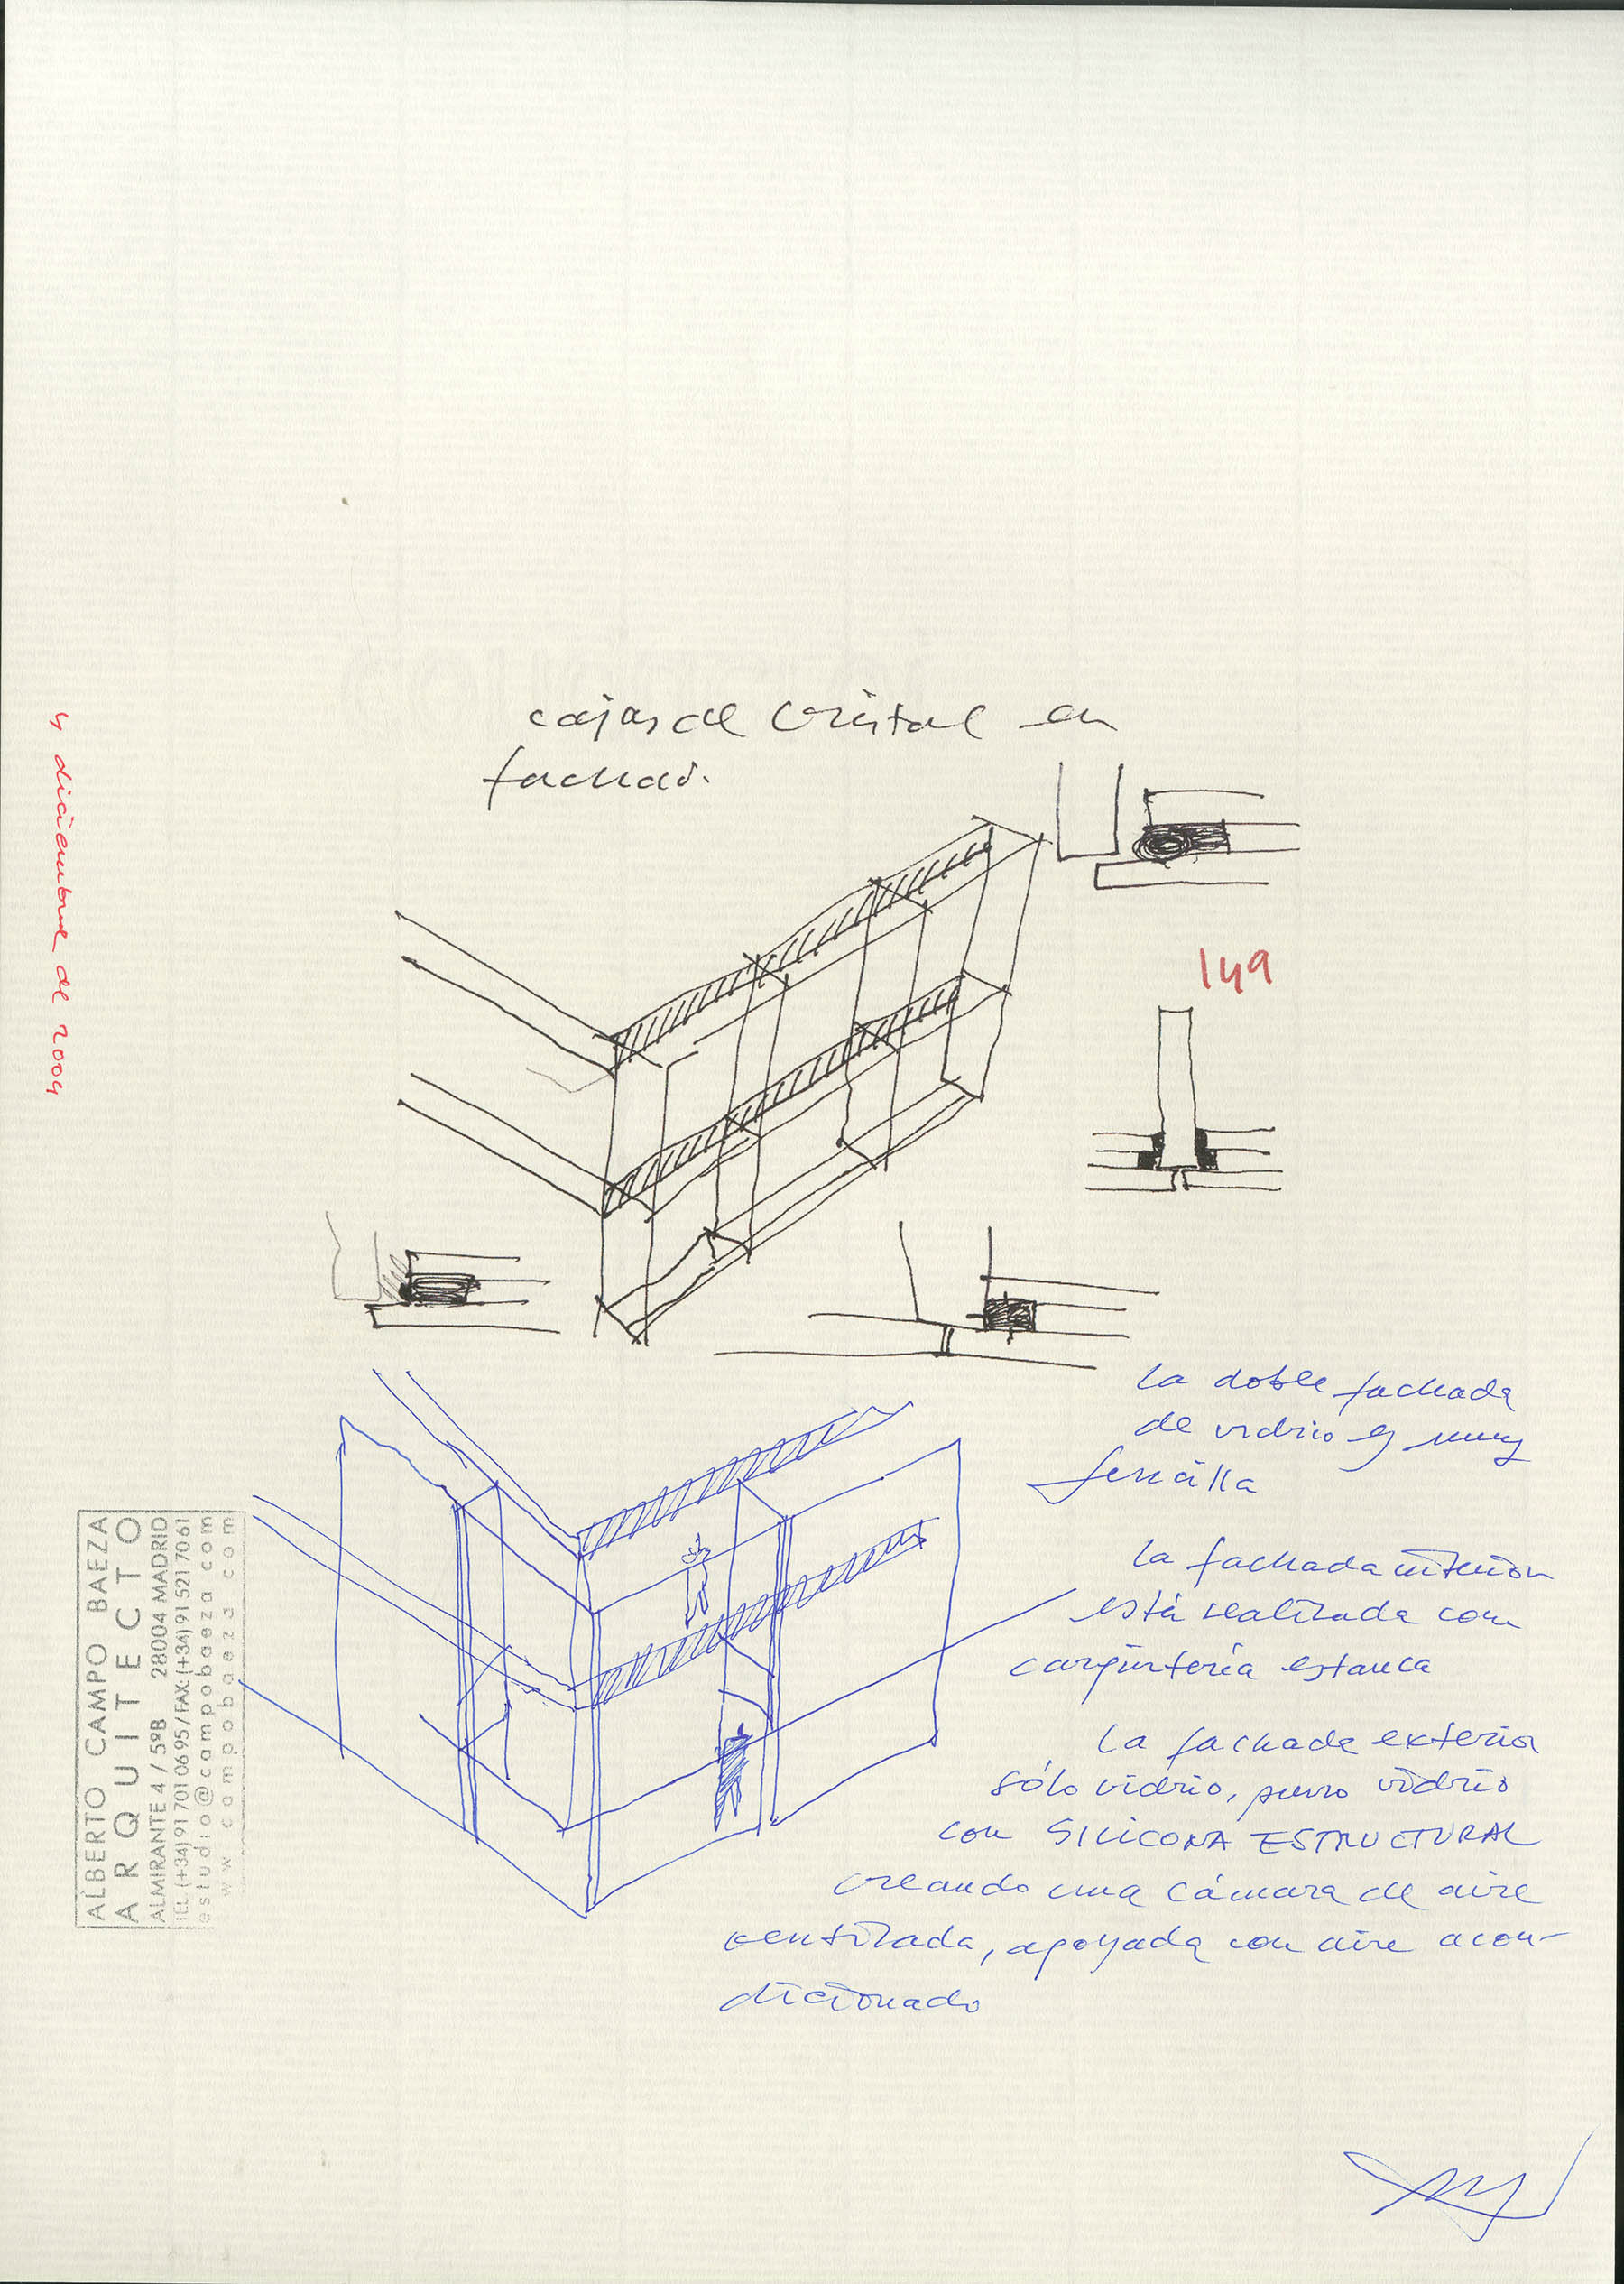 cajas de cristal en
fachada.
149
4 diciembre de 2004
la doble fachada
de vidrio es muy
sencilla
la fachada interior
está realizada con
carpintería estanca
La fachada exterior
sólo vidrio, puro vidrio
con SILICONA ESTRUCTURAL
creando una cámara de aire
ventilada, apoyada con aire acon-
dicionado
ALBERTO CAMPO BAEZA
ARQUITECTO
ALMIRANTE 4 / 5ºB 28004 MADRID
TEL (+34) 91 701 06 95 / FAX: (+34) 91 521 70 61
estudio@campobaeza.com
www.campobaeza.com